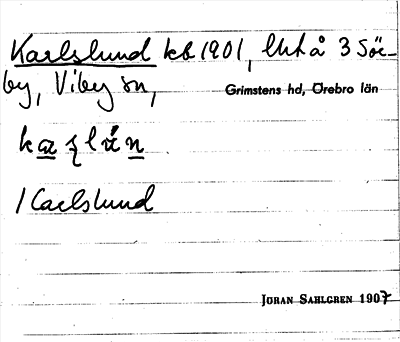 Karlslund kb 1901, lht å 3 Sör-
by, Viby sn, Grimstens hd, Örebro län
Karlslund
JÖRAN SAHLGREN 1907